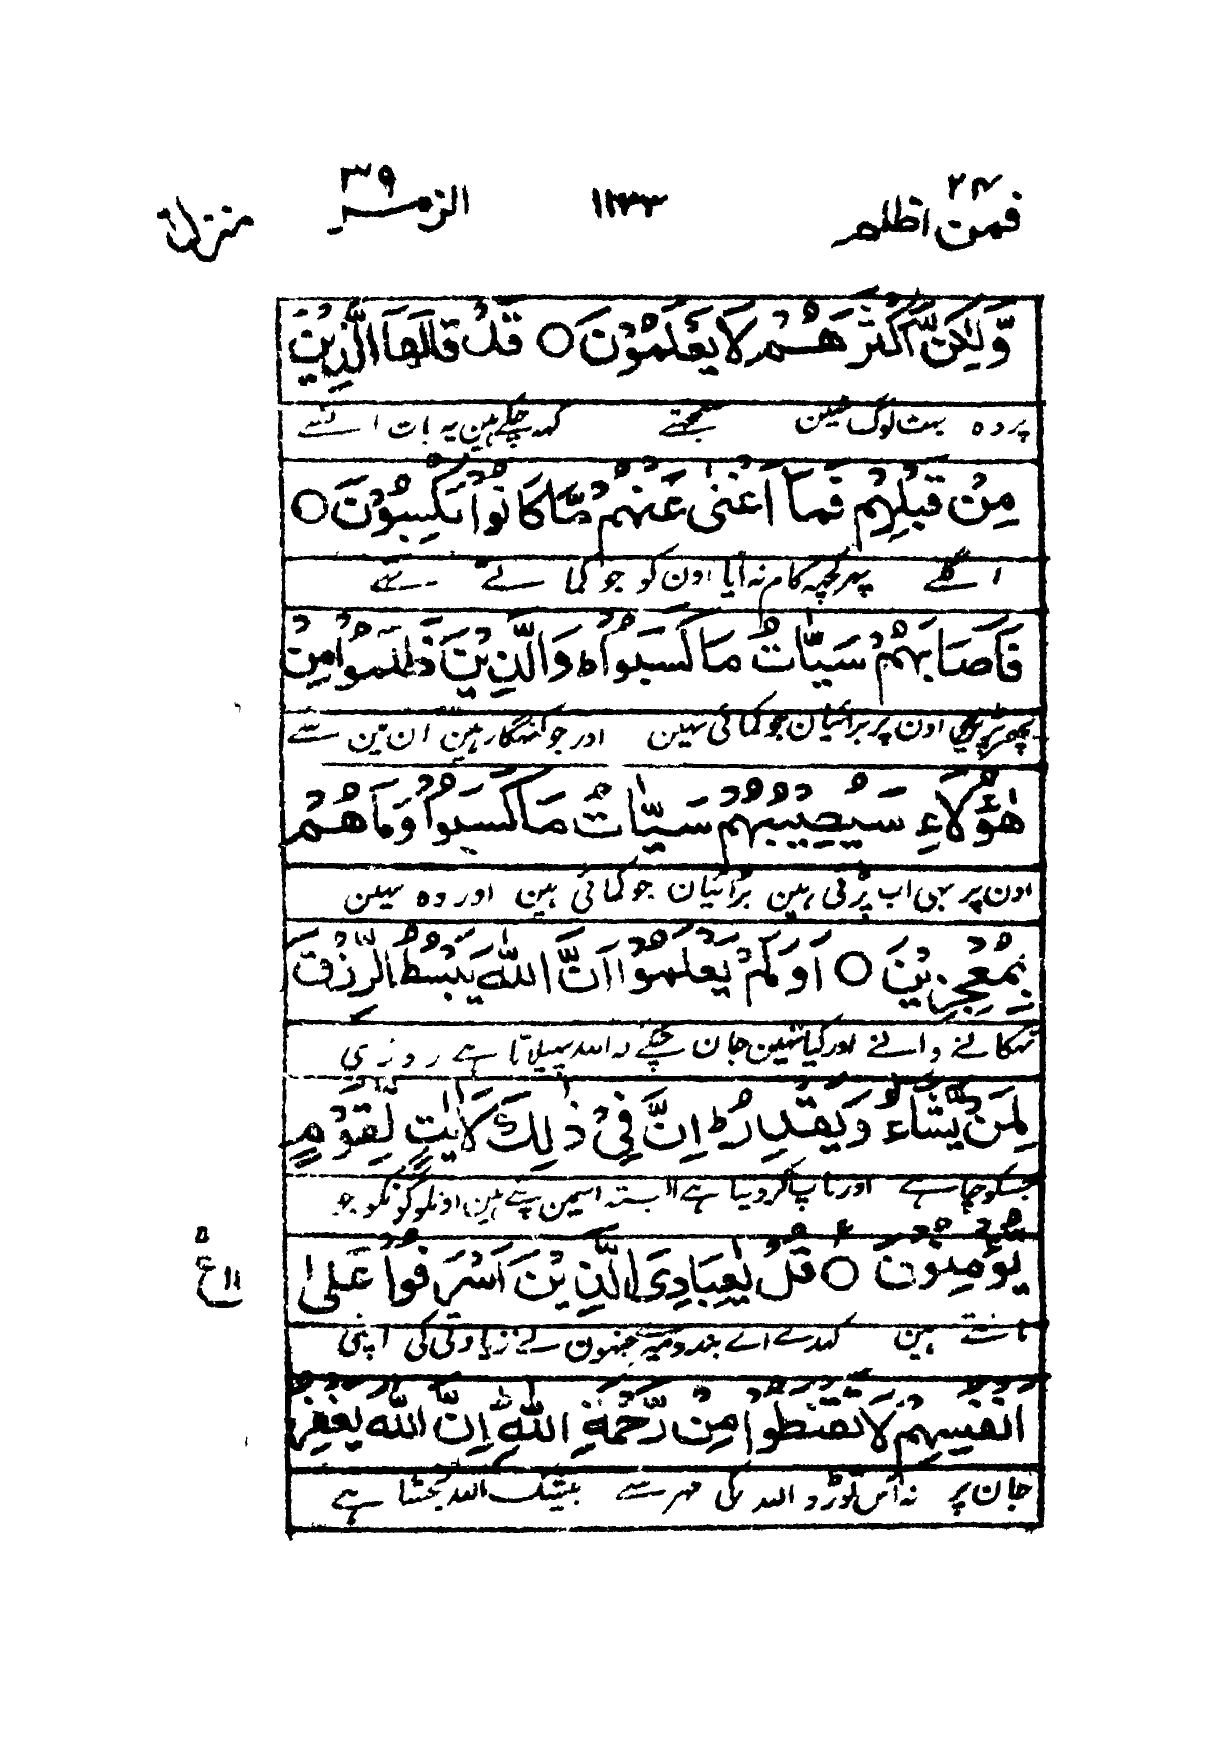 فمن اظلم ۲۴ ۱۱۳۳ الزمر ۳۹ منزل
وَّلٰكِنَّ اَكْثَرَهُمْ لَا يَعْلَمُوْنَ ○ قَدْ قَالَهَا الَّذِيْنَ
پر وہ بہت لوگ نہین سمجھتے کہہ چکے ہین یہ بات انسے
مِنْ قَبْلِهِمْ فَمَاۤ اَغْنٰى عَنْهُمْ مَّا كَانُوْا يَكْسِبُوْنَ ○
اگلے پہر کچھہ کام نہ آیا اون کو جو کماتے تھے
فَاَصَابَهُمْ سَيِّاٰتُ مَا كَسَبُوْا ؕ وَالَّذِيْنَ ظَلَمُوْا مِنْ
پھر پڑی اون پر برائیان جو کمائی تہین اور جو گنہگار ہین ان مین سے
هٰۤؤُلَآءِ سَيُصِيْبُهُمْ سَيِّاٰتُ مَا كَسَبُوْا وَمَا هُمْ
اون پر بہی اب پڑتی ہین برائیان جو کمائی ہین اور وہ نہین
بِمُعْجِزِيْنَ ○ اَوَلَمْ يَعْلَمُوْۤا اَنَّ اللّٰهَ يَبْسُطُ الرِّزْقَ
تہکانے والے اور کیا نہین جان چکے کہ اللہ پہیلاتا ہے روزی
لِمَنْ يَّشَآءُ وَيَقْدِرُ ؕ اِنَّ فِيْ ذٰلِكَ لَاٰيٰتٍ لِّقَوْمٍ
جسکو چاہے اور ناپ کر دیتا ہے البتہ اسمین پتے ہین اون لوگونکو جو
يُّؤْمِنُوْنَ ○ قُلْ يٰعِبَادِيَ الَّذِيْنَ اَسْرَفُوْا عَلٰۤى
مانتے ہین کہدے اے بندو میرے جنہون نے زیادتی کی اپنی
اَنْفُسِهِمْ لَا تَقْنَطُوْا مِنْ رَّحْمَةِ اللّٰهِ ؕ اِنَّ اللّٰهَ يَغْفِرُ
جان پر نہ آس توڑو اللہ کی مہر سے بیشک اللہ بخشتا ہے